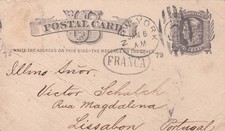 POSTAL CARD
NEW YORK
2
AM
WRITE THE ADDRESS ON THIS SIDE - THE MESSAGE ON THE OTHER
FRANCA
79
Illmo Snr.
Victor Schalch
Rua Magdalena
Lissabon
Portugal